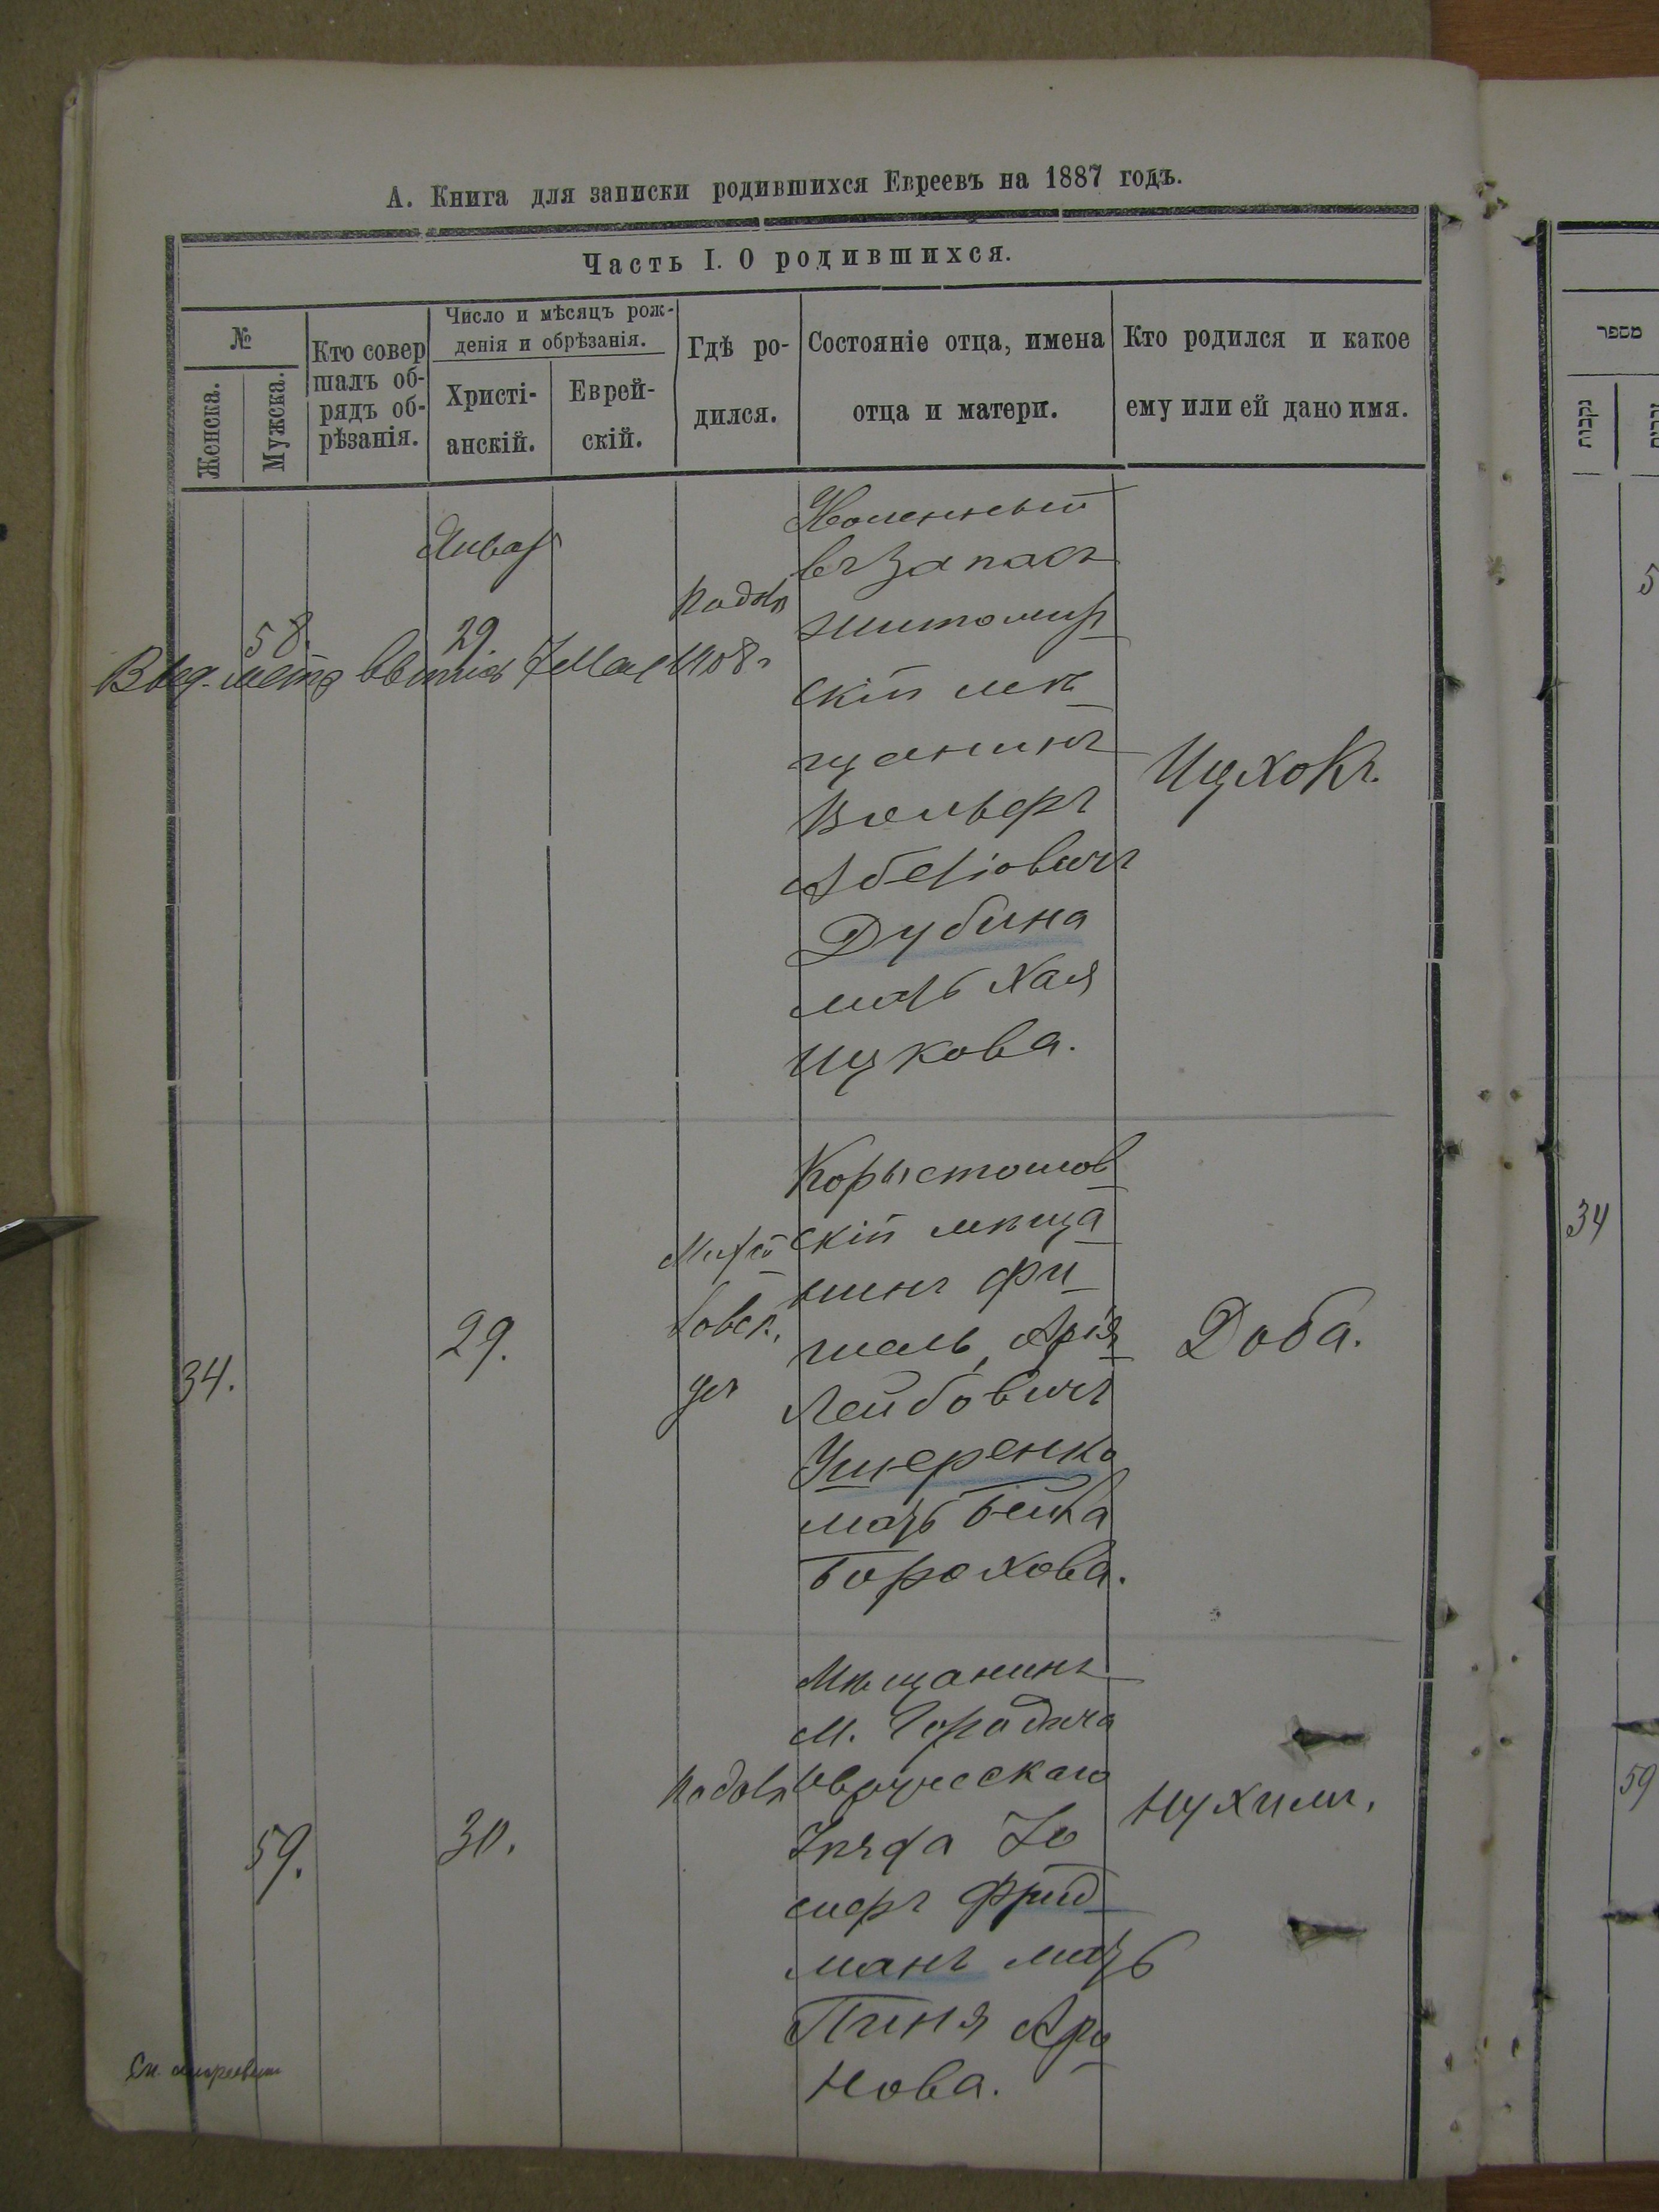 А. Книга для записки родившихся Евреевъ на 1887 годъ.
Часть I. О родившихся.
№
Женска.
Мужска.
Кто совер
шалъ об-
рядъ об-
рѣзанія.
Число и мѣсяцъ рож-
денія и обрѣзанія.
Христі-
анскій.
Еврей-
скій.
Гдѣ ро-
дился.
Состояніе отца, имена
отца и матери.
Кто родился и какое
ему или ей дано имя.
58.
Январ
29
Подолъ
Выд. метр 7 Мая 1108
Уволенный
въ запасъ
житомир
скій мѣ
щанинъ
Вольфъ
Абеліовичъ
Дубина
мать Хая
Ицкова.
Ицхокъ.
34.
29.
Корыстошов
скій мѣща
нинъ Фи
шель Арія
Лейбовичъ
Ушеренко
мать Бейла
Борохова.
Доба.
59.
30.
Подолъ
Мѣщанинъ
м. Городича
Овручскаго
уѣзда Іо
сифъ Фрид
манъ мать
Пиня Аро
нова.
Нухимъ.
מספר
נקבות
5
34
59